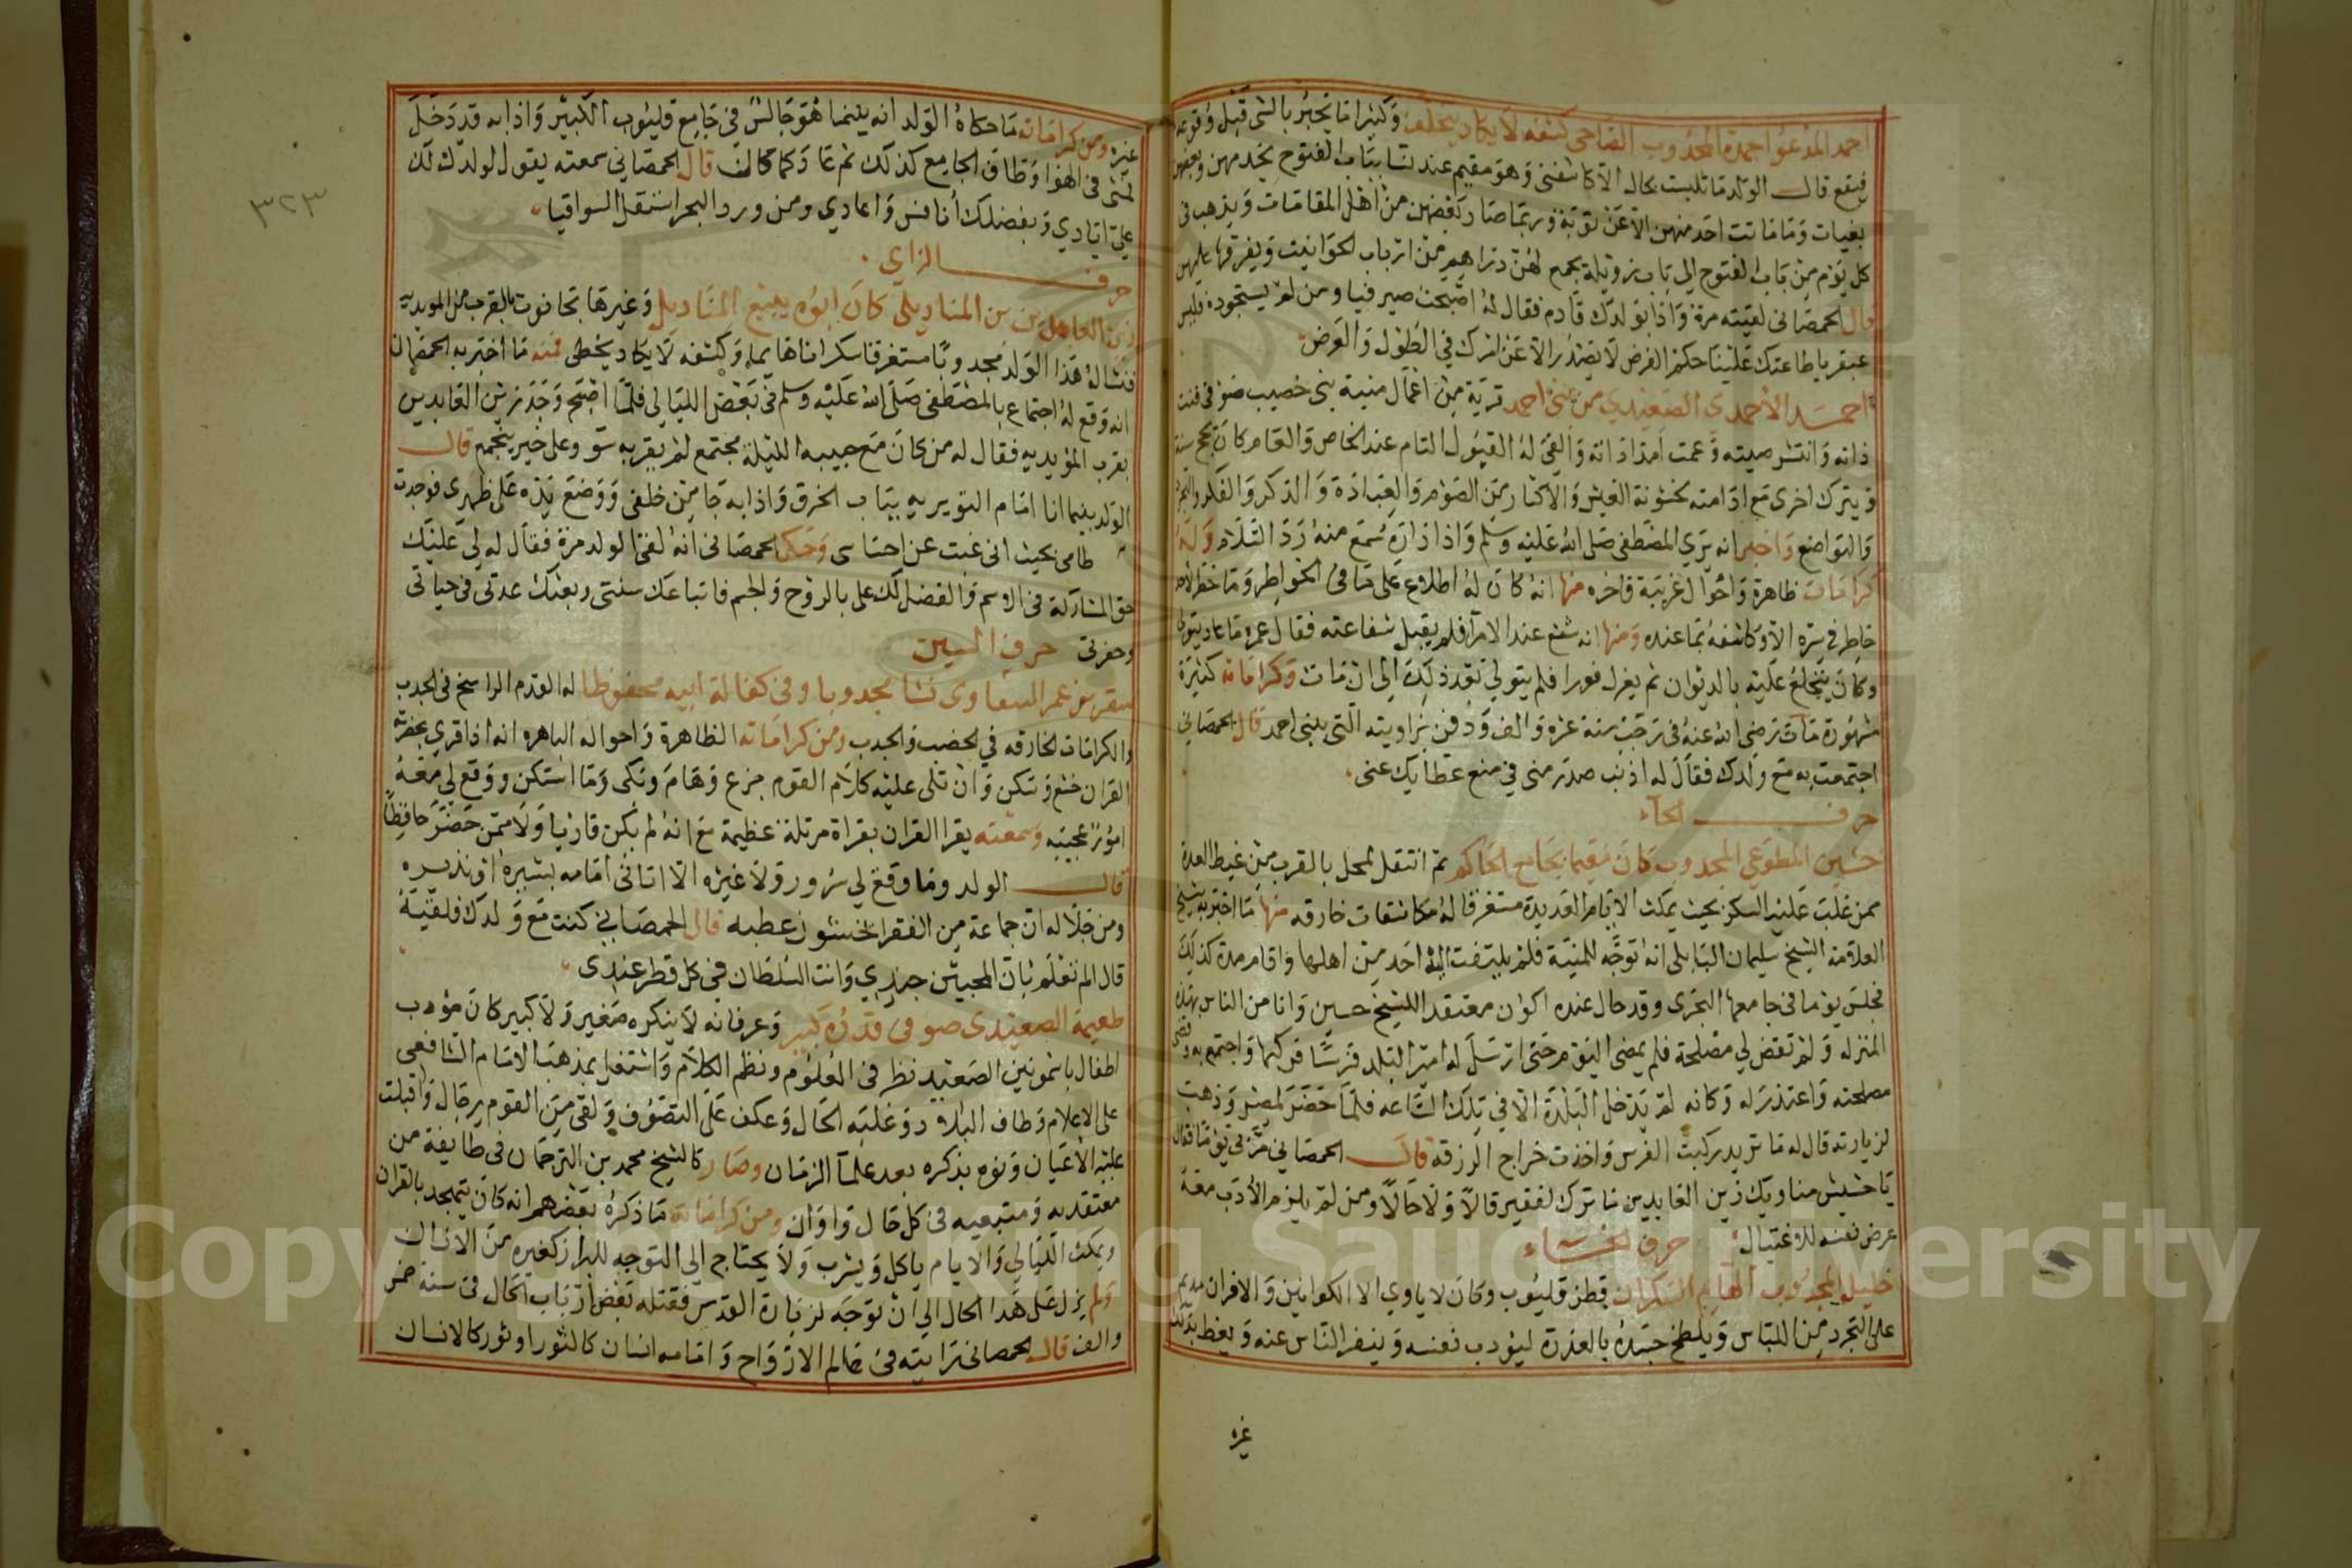 احمد المدعو احمدة المجذوب الصاحى كشفه لا يكاد يتخلف وكثيرا ما يخبر بالشى قبل وقوعه
فيقع قال الولد ما تلبست بحال الا كاشفنى وهو مقيم عند نسا بباب الفتوح يخدمهن وبعضهن
بغيات وما ماتت احد منهن الا عن توبة وربما صار بعضهن من اهل المقامات ويذهب فى
كل يوم من باب الفتوح الى باب زويلة يجمع لهن دراهم من ارباب الحوانيت ويفرقها عليهن
قال الحمصانى لقيته مرة واذا بولدك قادم فقال له اصبحت صيرفيا ومن لم يستجوده فليس
عبقريا طاعتك علينا حكم الفرض لا يصدر الا عن امرك في الطول والعرض
احمد الاحمدى الصعيدي من بنى احمد قرية من اعمال منية بنى خصيب صوفى
ذاته وانتشر صيته وعمت امداداته والقى له القبول التام عند الخاص والعام كان يحج سنة
ويترك اخرى مع ادامته بخشونة العيش والاكثار من الصوم والعبادة والذكر والفكر
والتواضع واخبر انه يرى المصطفى صلى الله عليه وسلم واذا زاره سمع منه رد السلام وله
كرامات ظاهرة واحوال غريبة فاخره منها انه كان له اطلاع على ما فى الخواطر وما خطر لاحد
خاطر في سره الا وكاشفه بما عنده ومنها انه شفع عند الامرا فلم يقبل شفاعته فقال عمره ما عاد يتولى
وكان يخلع عليه بالديوان ثم يعزل فورا فلم يتولى بعد ذلك الى ان مات وكراماته كثيرة
مشهورة مات رضى الله عنه فى رجب سنة عشرة والف ودفن بزاويته التى ببنى احمد قال الحمصاني
اجتمعت به مع ولدك فقال له اذنب صدر منى في منع عطاياك عنى
حرف الحاء
حسين المطوعي المجذوب كان مقيما بجامع الحاكم ثم انتقل لمحل بالقرب من غيط العدة
ممن غلب عليه السكر بحيث يمكث الايام العديدة مستغرقا له مكاشفات خارقه منها ما اخبر به شيخ
العلامة الشيخ سليمان البابلى انه توجه للمنية فلم يلتفت اليه احد من اهلها واقام مدة كذلك
فجلس يوما فى جامعها البحرى وقد حال عنده اكون معتقدا للشيخ حسين وانا من الناس بهذه
المنزله ولم تقض لي مصلحة فلم يمضى اليوم حتى ارسل له امير البلد فرسا فركبها واجتمع به وقضى
مصلحته واعتذر له وكانه لم يدخل البلدة الا في تلك الساعه فلما حضر لمصر وذهب
لزيارته قال له ما تريد ركبت الفرس واخذت خراج الرزقه قال الحمصاني مر بي يوما فقال
يا حشيش مناويك زين العابدين ما ترك لفقير قالا ولا حالا ومن لم يلزم الادب معه
عرض نفسه للاغتيال حرف الخاء
خليل المجذوب الهايم السكران قطن قليوب وكان لا ياوي الا الكوانين والافران مديم
على التجرد من اللباس ويلطخ جسده بالعذرة ليؤدب نفسه وينفر الناس عنه ويغط بذلك
غيره
٣٢٣
غيره ومن كراماته ما حكاه الولد انه بينما هو جالس فى جامع قليوب الكبير واذا به قد دخل
يمشى فى الهوا وطاف الجامع كذلك ثم عاد كما كان قال الحمصاني سمعته يقول لولدك لك
علي ايادي وبفضلك انافس واعادي ومن ورد البحر استقل السواقيا
حرف الزاي
زين العابدين بن المناديلى كان ابوه يبيع المناديل وغيرها بحانوت بالقرب من المويديه
فنشا له هذا الولد مجذوبا مستغرقا سكرانا هايما وكشفه لا يكاد يخطى فمنه ما اخبر به الحمصانى
انه وقع له اجتماع بالمصطفى صلى الله عليه وسلم فى بعض الليالى فلما اصبح وجد زين العابدين
بقرب المؤيديه فقال له من كان مع حبيبه الليلة مجتمع لم يقربه سو وعلى خير ينجمع قال
الولد بينما انا امام النويريه بباب الخرق واذا به جا من خلفى ووضع يده على ظهرى فوجدت
طامى بحيث انى غبت عن احساسى وحكى الحمصانى انه لقى الولد مرة فقال له لي عليك
حق المشاركة فى الاسم والفضل لك على بالروح والجسم فاتباعك سنتى ربعتك عدتى في حياتى
وحضرتى حرف السين
سقر بن عمر السقاوى نشا مجذوبا وفى كفالة ابيه محفوظا له القدم الراسخ فى الجذب
والكرامات الخارقه في الخصب والجدب ومن كراماته الظاهرة واحواله الباهره انه اذا قري بحضرته
القران خشع وسكن وان تلى عليه كلام القوم جزع وهام وبكى وما استكن ووقع لي معه
امور عجيبه وسمعته يقرا القران بقراة مرتلة عظيمة مع انه لم يكن قاريا ولا ممن حضر حافظا
قال الولد وما وقع لي سرور ولا غيره الا اتانى امامه بشيره او نذيره
ومن جلاله ان جماعة من الفقرا يخشون عطبه قال الحمصاني كنت مع ولدك فلقيته
قال الم تعلم بان المحبين جندي وانت السلطان في كل قطر عندى
طعيمة الصعيدى صوفى قدره كبير وعرفانه لا ينكره صغير ولا كبير كان مؤدب
اطفال باشمونين الصعيد نظر فى العلوم ونظم الكلام واشتغل بمذهب الامام الشافعى
على الاعلام وطاف البلاد وغلبه الحال وعكف على التصوف ولقى من القوم رجال واقبلت
عليه الاعيان ونوه بذكره بعد علما الزمان وصار كالشيخ محمد بن الترجمان فى طايفة من
معتقديه ومتبعيه فى كل حال واوان ومن كراماته ما ذكره بعضهم انه كان يتهجد بالقران
ويمكث الليالي والايام ياكل ويشرب ولا يحتاج الى التوجه للبراز كغيره من الانسان
ولم يزل على هذا الحال الى ان توجه لزيارة القدس فقتله بعض ارباب الحال فى سنة خمس
والف قال الحمصانى رايته فى عالم الارواح وامامه انسان كالثور او ثور كالانسان
Copyright © King Saud University